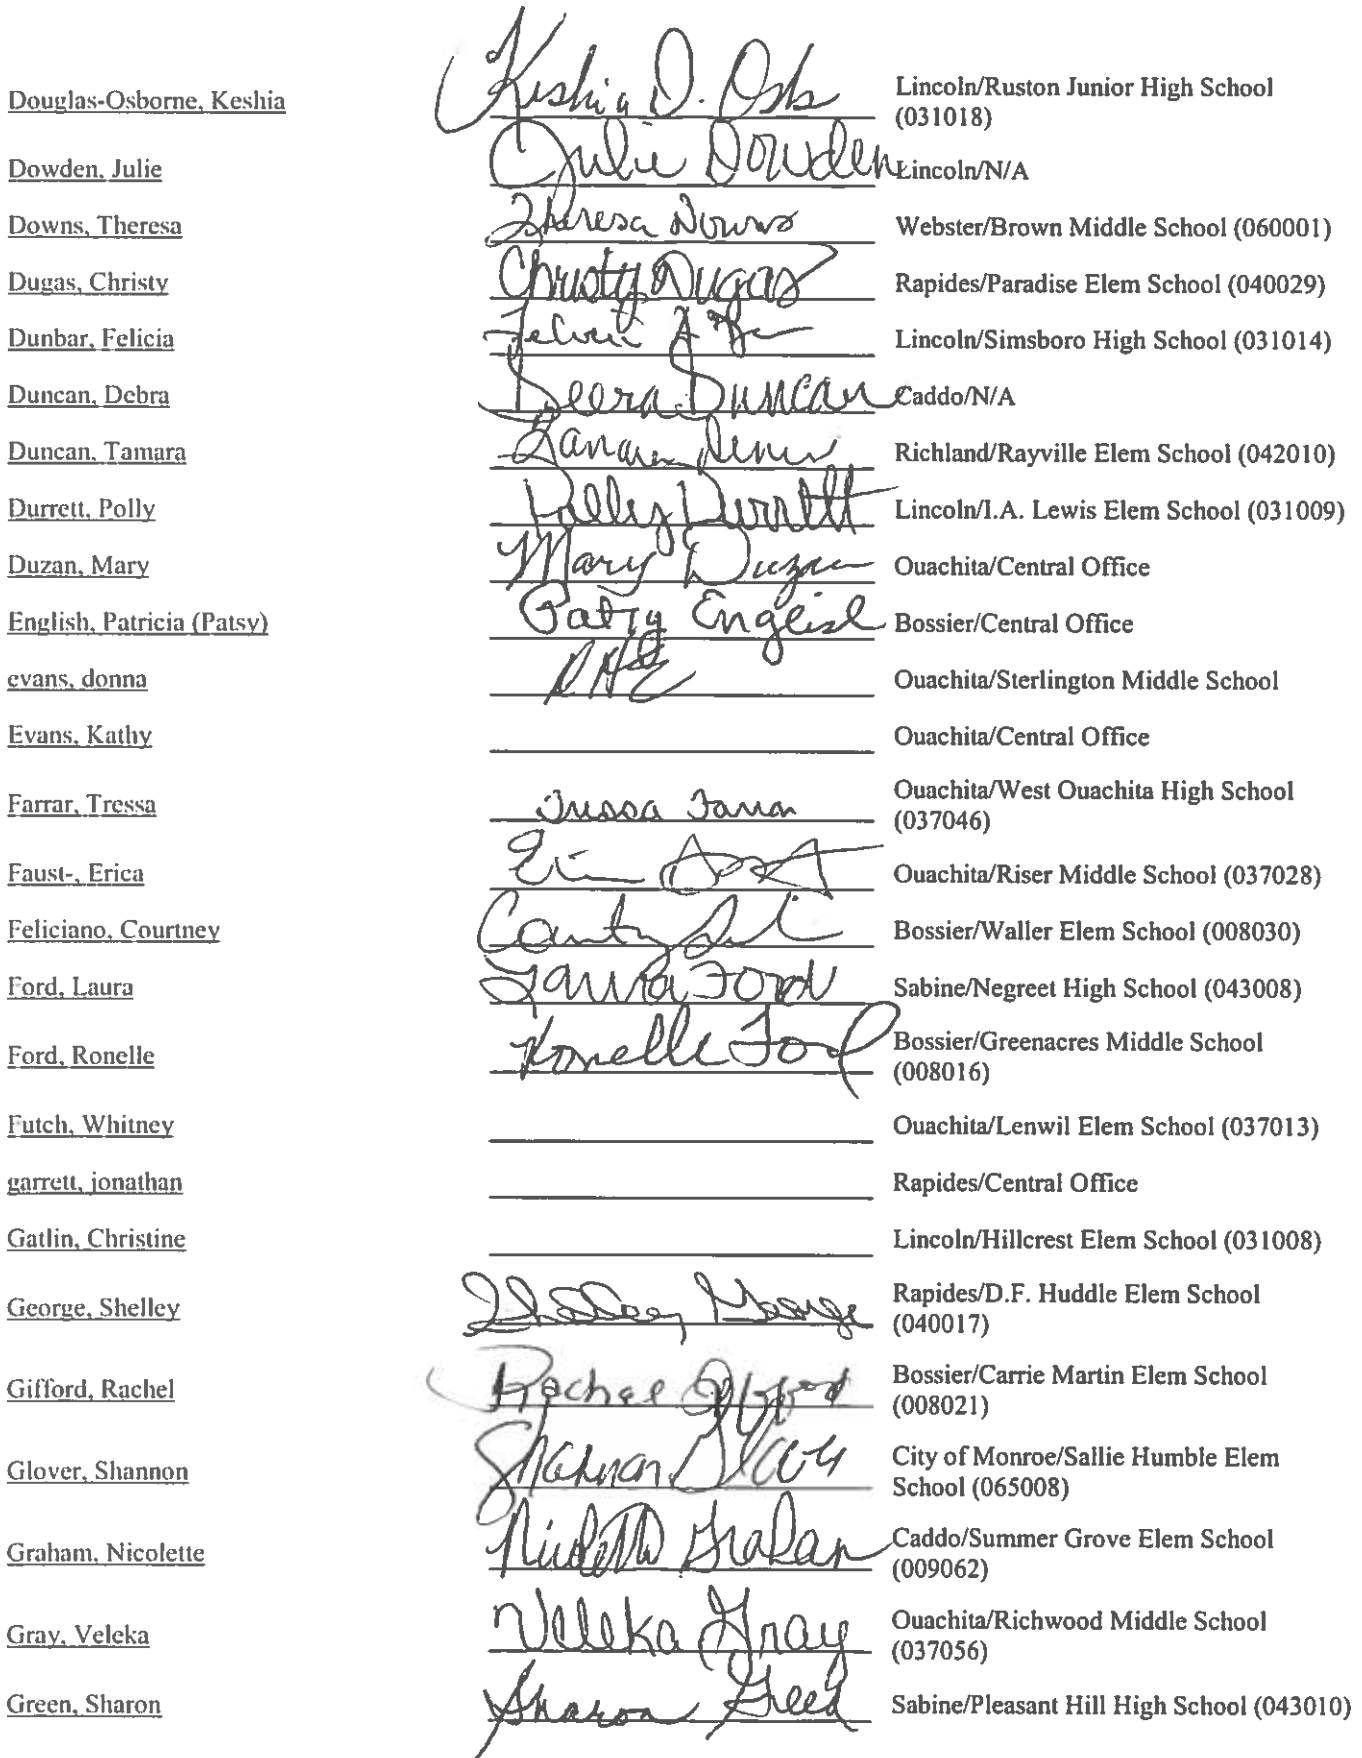 Douglas-Osborne, Keshia Keshia D. Osb Lincoln/Ruston Junior High School
(031018)
Dowden, Julie Julie Dowden Lincoln/N/A
Downs, Theresa Theresa Downs Webster/Brown Middle School (060001)
Dugas, Christy Christy Dugas Rapides/Paradise Elem School (040029)
Dunbar, Felicia Lincoln/Simsboro High School (031014)
Duncan, Debra Debra Duncan Caddo/N/A
Duncan, Tamara Tamara Richland/Rayville Elem School (042010)
Durrett, Polly Polly Durrett Lincoln/I.A. Lewis Elem School (031009)
Duzan, Mary Mary Duzan Ouachita/Central Office
English, Patricia (Patsy) Patsy English Bossier/Central Office
evans, donna DHE Ouachita/Sterlington Middle School
Evans, Kathy Ouachita/Central Office
Farrar, Tressa Tressa Farrar Ouachita/West Ouachita High School
(037046)
Faust-, Erica Ouachita/Riser Middle School (037028)
Feliciano, Courtney Bossier/Waller Elem School (008030)
Ford, Laura Laura Ford Sabine/Negreet High School (043008)
Ford, Ronelle Ronelle Ford Bossier/Greenacres Middle School
(008016)
Futch, Whitney Ouachita/Lenwil Elem School (037013)
garrett, jonathan Rapides/Central Office
Gatlin, Christine Lincoln/Hillcrest Elem School (031008)
George, Shelley Shelley George Rapides/D.F. Huddle Elem School
(040017)
Gifford, Rachel Rachel Gifford Bossier/Carrie Martin Elem School
(008021)
Glover, Shannon Shannon Glover City of Monroe/Sallie Humble Elem
School (065008)
Graham, Nicolette Nicolette Graham Caddo/Summer Grove Elem School
(009062)
Gray, Veleka Veleka Gray Ouachita/Richwood Middle School
(037056)
Green, Sharon Sharon Green Sabine/Pleasant Hill High School (043010)